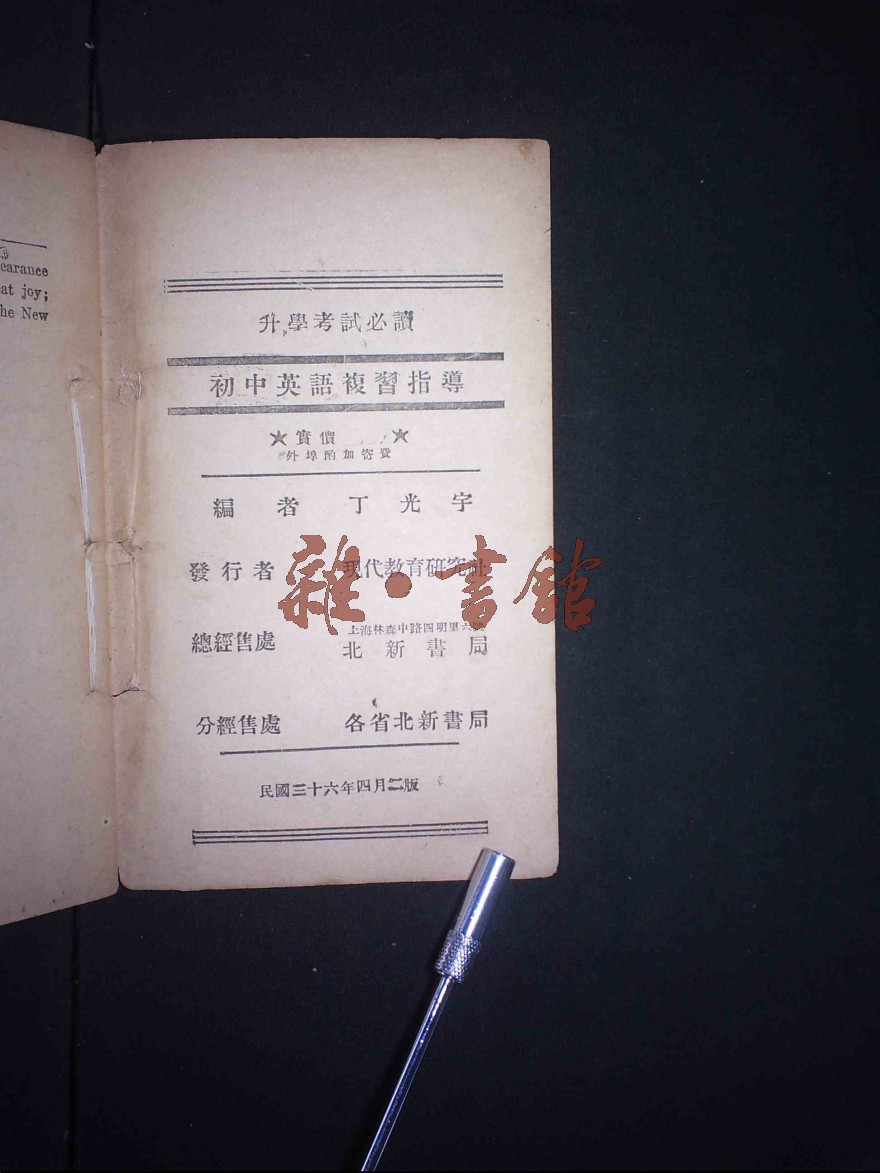 earance
at joy;
he New
升學考試必讀
初中英語複習指導
★實價 ★
外埠酌加寄費
編者 丁光宇
發行者 現代教育研究社
總經售處 上海林森中路四明里六號
北新書局
分經售處 各省北新書局
民國三十六年四月二版
雜·書館